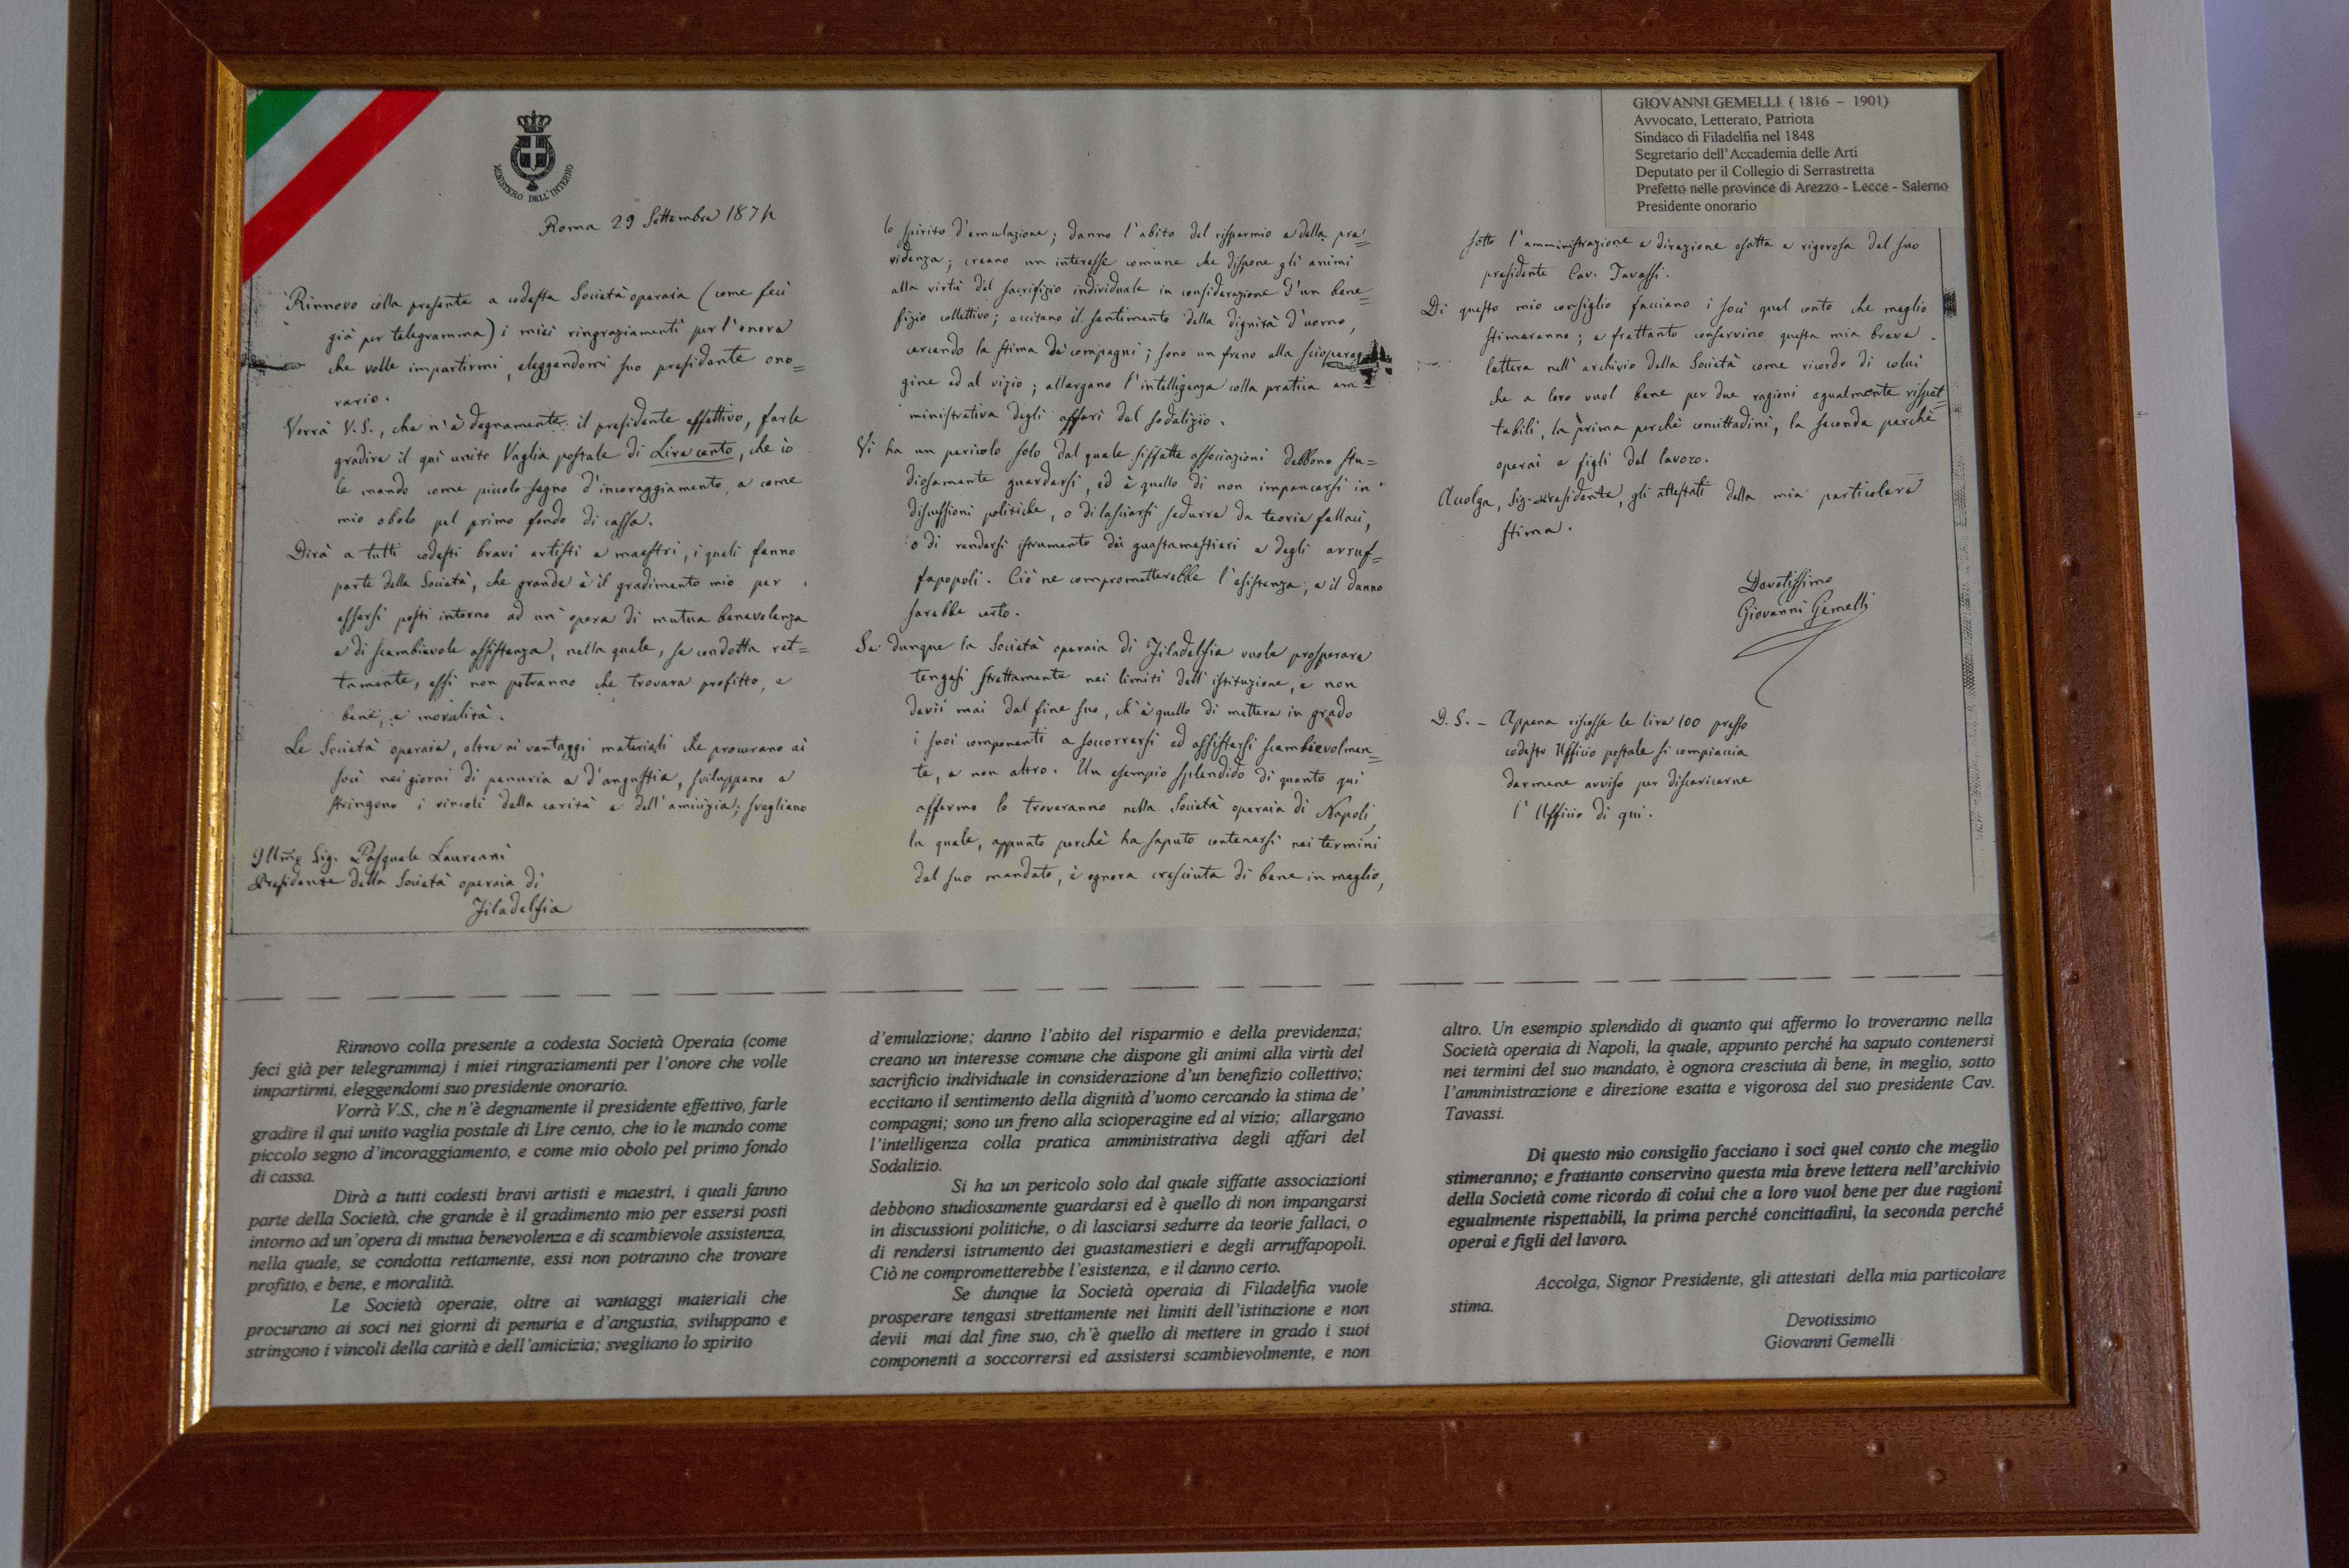 MINISTERO DELL'INTERNO
Roma 29 Settembre 187
Rinnovo colla presente a codesta Società operaia (come feci
già per telegramma) i miei ringraziamenti per l'onore
che volle impartirmi, eleggendomi suo presidente ono=
rario.
Vorrà V.S., che n'è degnamente il presidente effettivo, farle
gradire il qui unito Vaglia postale di Lire cento, che io
le mando come piccolo segno d'incoraggiamento, e come
mio obolo pel primo fondo di cassa.
Dirà a tutti codesti bravi artisti e maestri, i quali fanno
parte della Società, che grande è il gradimento mio per
essersi posti intorno ad un'opera di mutua benevolenza
e di scambievole assistenza, nella quale, se condotta ret=
tamente, essi non potranno che trovare profitto, e
bene, e moralità.
Le Società operaie, oltre ai vantaggi materiali che procurano ai
soci nei giorni di penuria e d'angustia, sviluppano e
stringono i vincoli della carità e dell'amicizia; svegliano
Illmo Sig. Pasquale Laureani
Presidente della Società operaia di
Filadelfia
lo spirito d'emulazione; danno l'abito del risparmio e della pre=
videnza; creano un interesse comune che dispone gli animi
alla virtù del sacrifizio individuale in considerazione d'un bene=
fizio collettivo; eccitano il sentimento della dignità d'uomo,
cercando la stima de' compagni; sono un freno alla scioperag=
gine ed al vizio; allargano l'intelligenza colla pratica am=
ministrativa degli affari del sodalizio.
Vi ha un pericolo solo dal quale siffatte associazioni debbono stu=
diosamente guardarsi, ed è quello di non impancarsi in
discussioni politiche, o di lasciarsi sedurre da teorie fallaci,
o di rendersi istrumento dei guastamestieri e degli arruf=
fapopoli. Ciò ne comprometterebbe l'esistenza, e il danno
sarebbe certo.
Se dunque la Società operaia di Filadelfia vuole prosperare
tengasi strettamente nei limiti dell'istituzione, e non
devii mai dal fine suo, ch'è quello di mettere in grado
i suoi componenti a soccorrersi ed assistersi scambievolmen=
te, e non altro. Un esempio splendido di quanto qui
affermo lo troveranno nella Società operaia di Napoli,
la quale, appunto perchè ha saputo contenersi nei termini
del suo mandato, è ognora cresciuta di bene in meglio,
GIOVANNI GEMELLI ( 1816 – 1901)
Avvocato, Letterato, Patriota
Sindaco di Filadelfia nel 1848
Segretario dell'Accademia delle Arti
Deputato per il Collegio di Serrastretta
Prefetto nelle province di Arezzo - Lecce - Salerno
Presidente onorario
sotto l'amministrazione e direzione esatta e rigorosa del suo
presidente Cav. Tavassi.
Di questo mio consiglio facciano i soci quel conto che meglio
stimeranno; e frattanto conservino questa mia breve
lettera nell'archivio della Società come ricordo di colui
che a loro vuol bene per due ragioni egualmente rispet=
tabili, la prima perchè concittadini, la seconda perchè
operai e figli del lavoro.
Accolga, Sig. Presidente, gli attestati della mia particolare
stima.
Devotissimo
Giovanni Gemelli
D. S. – Appena riscosse le lire 100 presso
codesto Ufficio postale si compiaccia
darmene avviso per discaricarne
l'Ufficio di qui.
Rinnovo colla presente a codesta Società Operaia (come
feci già per telegramma) i miei ringraziamenti per l'onore che volle
impartirmi, eleggendomi suo presidente onorario.
Vorrà V.S., che n'è degnamente il presidente effettivo, farle
gradire il qui unito vaglia postale di Lire cento, che io le mando come
piccolo segno d'incoraggiamento, e come mio obolo pel primo fondo
di cassa.
Dirà a tutti codesti bravi artisti e maestri, i quali fanno
parte della Società, che grande è il gradimento mio per essersi posti
intorno ad un'opera di mutua benevolenza e di scambievole assistenza,
nella quale, se condotta rettamente, essi non potranno che trovare
profitto, e bene, e moralità.
Le Società operaie, oltre ai vantaggi materiali che
procurano ai soci nei giorni di penuria e d'angustia, sviluppano e
stringono i vincoli della carità e dell'amicizia; svegliano lo spirito
d'emulazione; danno l'abito del risparmio e della previdenza;
creano un interesse comune che dispone gli animi alla virtù del
sacrificio individuale in considerazione d'un benefizio collettivo;
eccitano il sentimento della dignità d'uomo cercando la stima de'
compagni; sono un freno alla scioperagine ed al vizio; allargano
l'intelligenza colla pratica amministrativa degli affari del
Sodalizio.
Si ha un pericolo solo dal quale siffatte associazioni
debbono studiosamente guardarsi ed è quello di non impangarsi
in discussioni politiche, o di lasciarsi sedurre da teorie fallaci, o
di rendersi istrumento dei guastamestieri e degli arruffapopoli.
Ciò ne comprometterebbe l'esistenza, e il danno certo.
Se dunque la Società operaia di Filadelfia vuole
prosperare tengasi strettamente nei limiti dell'istituzione e non
devii mai dal fine suo, ch'è quello di mettere in grado i suoi
componenti a soccorrersi ed assistersi scambievolmente, e non
altro. Un esempio splendido di quanto qui affermo lo troveranno nella
Società operaia di Napoli, la quale, appunto perché ha saputo contenersi
nei termini del suo mandato, è ognora cresciuta di bene, in meglio, sotto
l'amministrazione e direzione esatta e vigorosa del suo presidente Cav.
Tavassi.
Di questo mio consiglio facciano i soci quel conto che meglio
stimeranno; e frattanto conservino questa mia breve lettera nell'archivio
della Società come ricordo di colui che a loro vuol bene per due ragioni
egualmente rispettabili, la prima perché concittadini, la seconda perché
operai e figli del lavoro.
Accolga, Signor Presidente, gli attestati della mia particolare
stima.
Devotissimo
Giovanni Gemelli